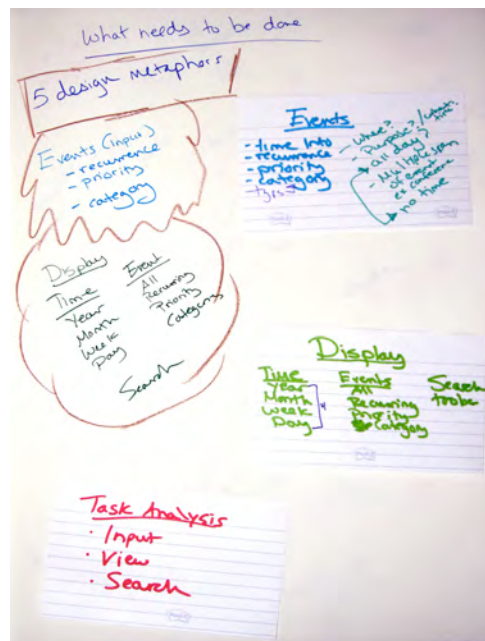 What needs to be done
5 design metaphors
Events (input)
- recurrence
- priority
- category
Display
Time
Year
Month
Week
Day
Event
All
Recurring
Priority
Categories
Search
Events
- time Info
- recurrence
- priority
- category
- where?
- Purpose?/
- all day?
- Multiple
of event
ex conference
no time
Display
Time
Year
Month
Week
Day
Events
All
Recurring
Priority
Category
Search
Task Analysis
· Input
· View
· Search